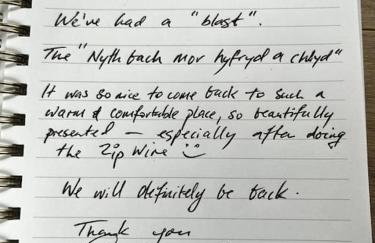 We've had a "blast".
The "Nyth bach mor hyfryd a chlyd"
It was so nice to come back to such a
warm & comfortable place, so beautifully
presented – especially after doing
the Zip Wire :)
We will definitely be back.
Thank you